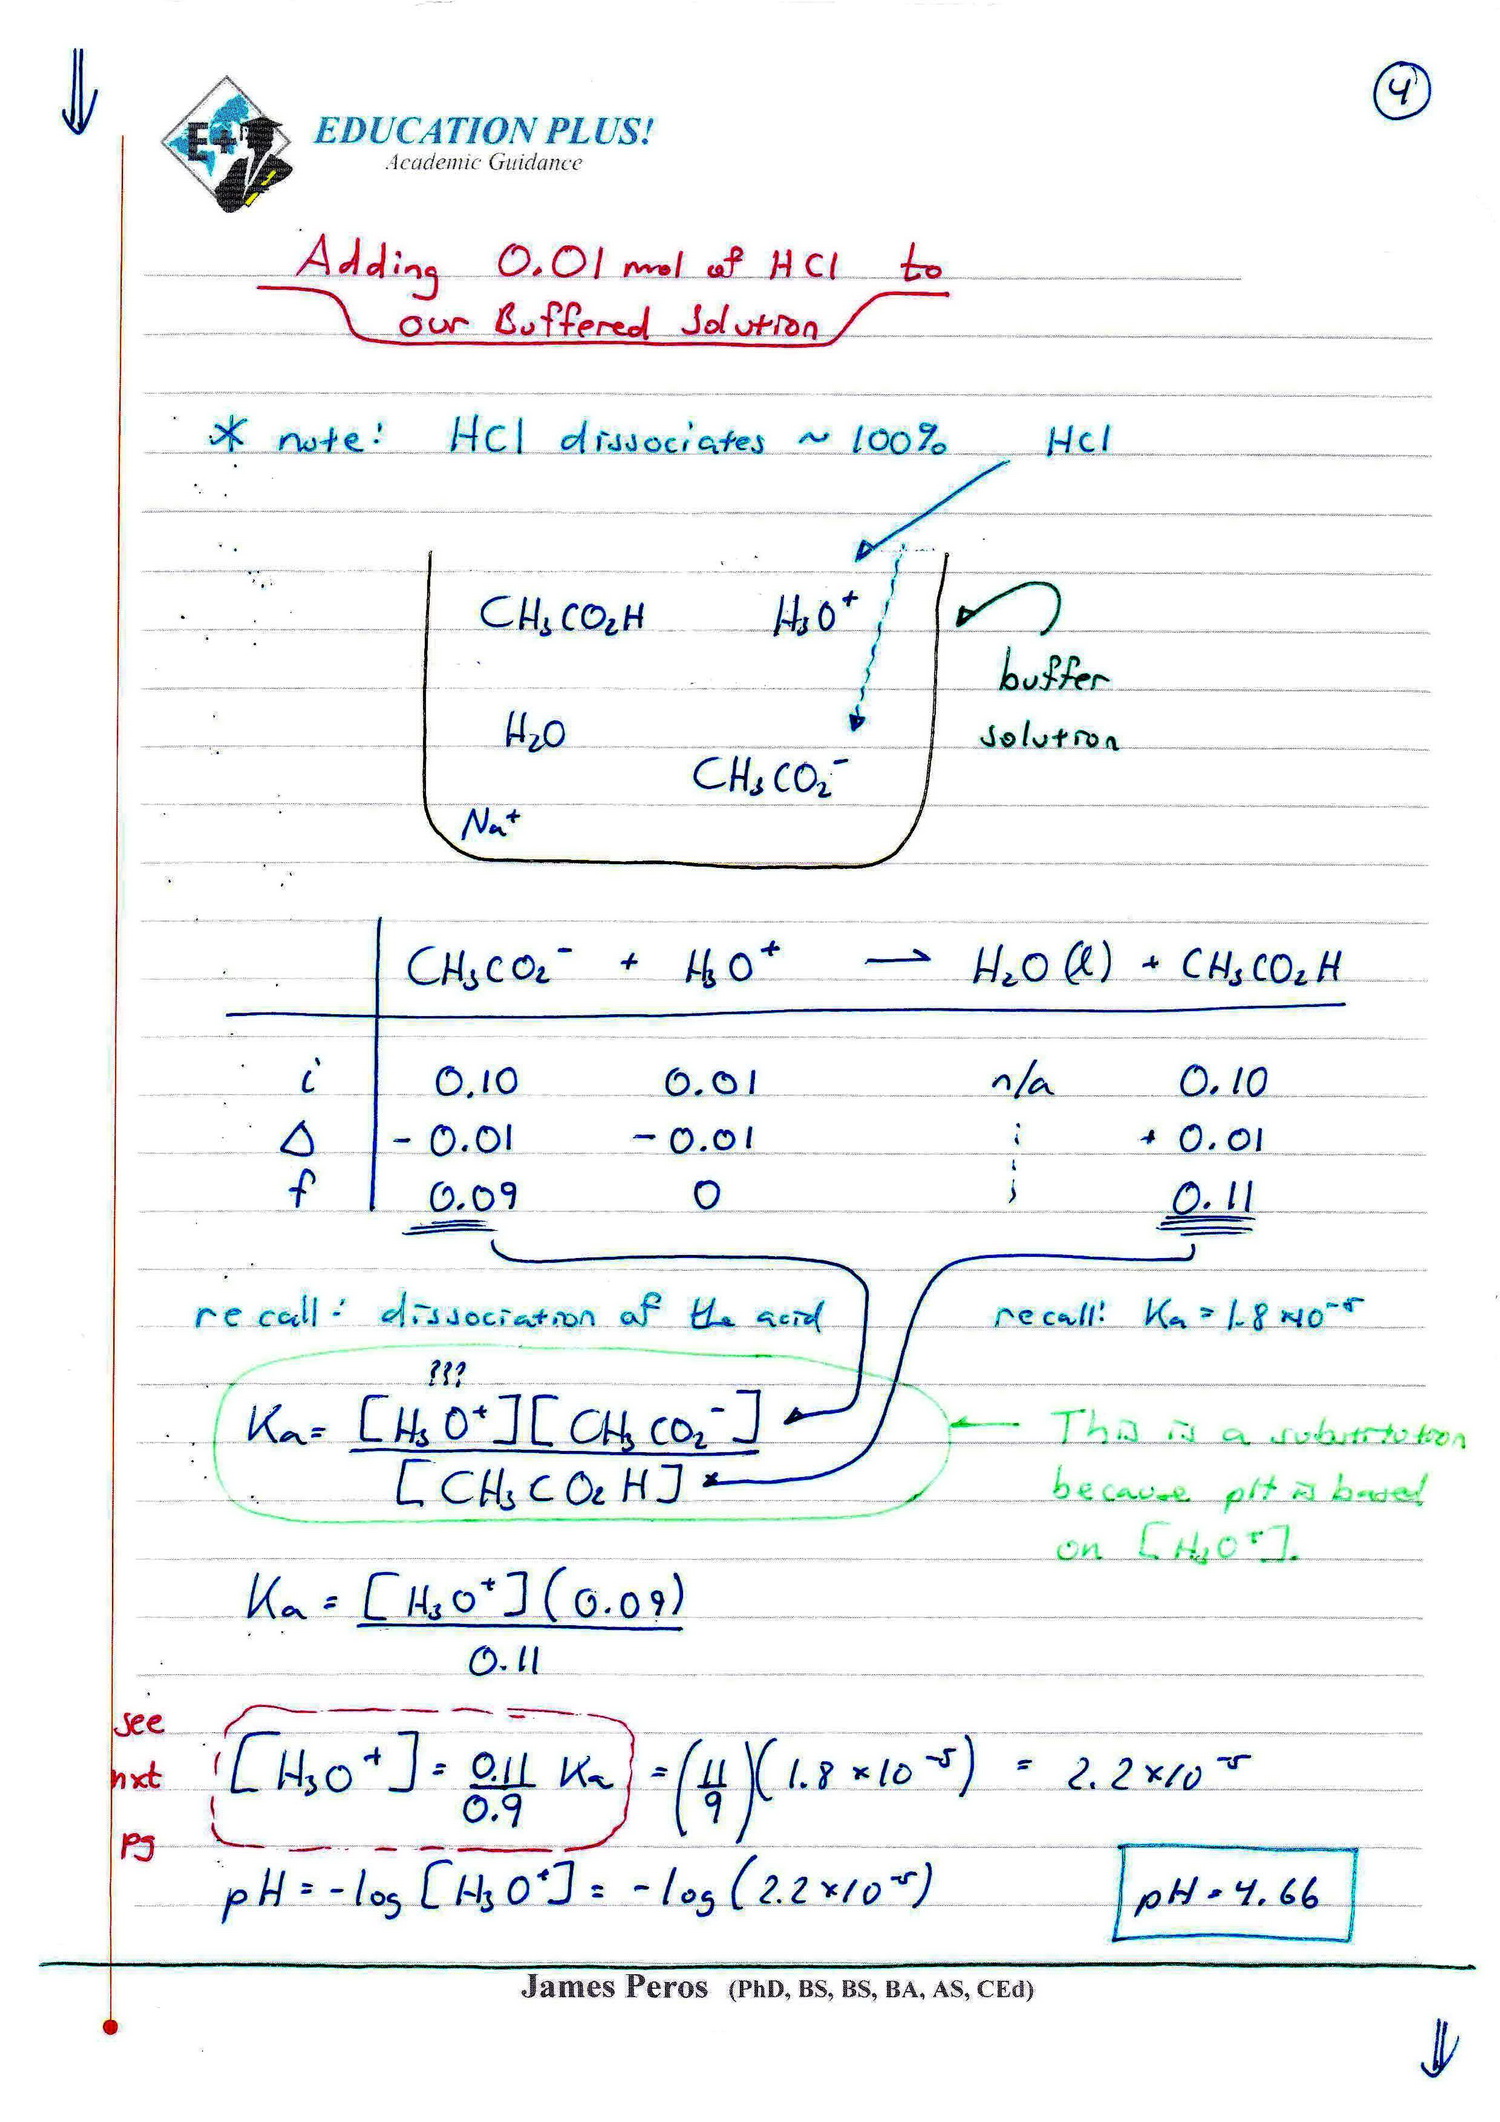 4
E+
EDUCATION PLUS!
Academic Guidance
Adding 0.01 mol of HCl to
our Buffered Solution
* note: HCl dissociates ~ 100% HCl
CH₃CO₂H H₃O⁺
buffer
H₂O solution
CH₃CO₂⁻
Na⁺
CH₃CO₂⁻ + H₃O⁺ → H₂O(l) + CH₃CO₂H
i 0.10 0.01 n/a 0.10
Δ - 0.01 - 0.01 + 0.01
f 0.09 0 0.11
recall: dissociation of the acid recall: Ka = 1.8×10⁻⁵
???
Ka = [H₃O⁺][CH₃CO₂⁻] ← This is a substitution
[CH₃CO₂H] because pH is based
on [H₃O⁺].
Ka = [H₃O⁺](0.09)
0.11
see
nxt
pg
[H₃O⁺] = 0.11/0.9 Ka = (11/9)(1.8×10⁻⁵) = 2.2×10⁻⁵
pH = -log[H₃O⁺] = -log(2.2×10⁻⁵) pH = 4.66
James Peros (PhD, BS, BS, BA, AS, CEd)